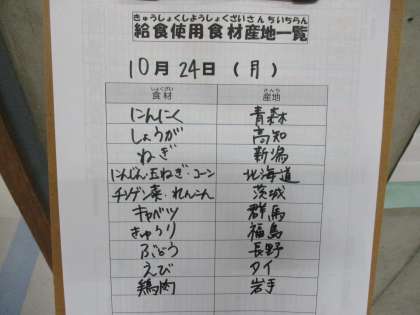 きゅうしょくしようしょくざいさんちいちらん
給食使用食材産地一覧
10月24日（月）
しょくざい さんち
食材 産地
にんにく 青森
しょうが 高知
ねぎ 新潟
にんじん・玉ねぎ・コーン 北海道
チンゲン菜・れんこん 茨城
キャベツ 群馬
きゅうり 福島
ぶどう 長野
えび タイ
鶏肉 岩手